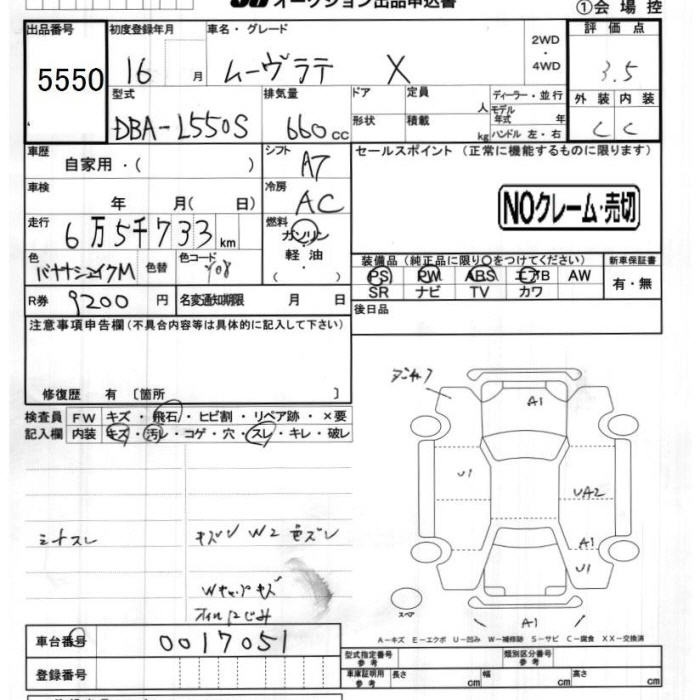 オークション出品申込書
①会場控
出品番号
5550
初度登録年月
16 月
車名・グレード
ムーヴラテ X
2WD
・
4WD
評価点
3.5
型式
DBA-L550S
排気量
660cc
ドア
定員 人
ディーラー・並行
モデル年式 年
形状
積載 kg
ハンドル 左・右
外装 内装
C C
車歴
自家用・( )
シフト
A7
セールスポイント (正常に機能するものに限ります)
車検
年 月( 日)
冷房
AC
NOクレーム・売切
走行
6万5千733km
燃料
ガソリン
軽油
( )
色
バナナシェイクM
色替
色コード
装備品(純正品に限り○をつけてください)
新車保証書
PS PW ABS エアB AW
有・無
SR ナビ TV カワ
R券
9200円
名変通知期限 月 日
後日品
注意事項申告欄(不具合内容等は具体的に記入して下さい)
修復歴 有 〔箇所 〕
検査員
記入欄
FW キズ・飛石・ヒビ割・リペア跡・×要
内装 キズ・汚レ・コゲ・穴・スレ・キレ・破レ
A1
U1
UA2
A1
U1
A1
スペア
キズ
A－キズ E－エクボ U－凹み W－補修跡 S－サビ C－腐食 XX－交換済
車台番号
0017051
登録番号
型式指定番号
参考
類別区分番号
参考
車庫証明用
参考
長さ cm
幅 cm
高さ cm